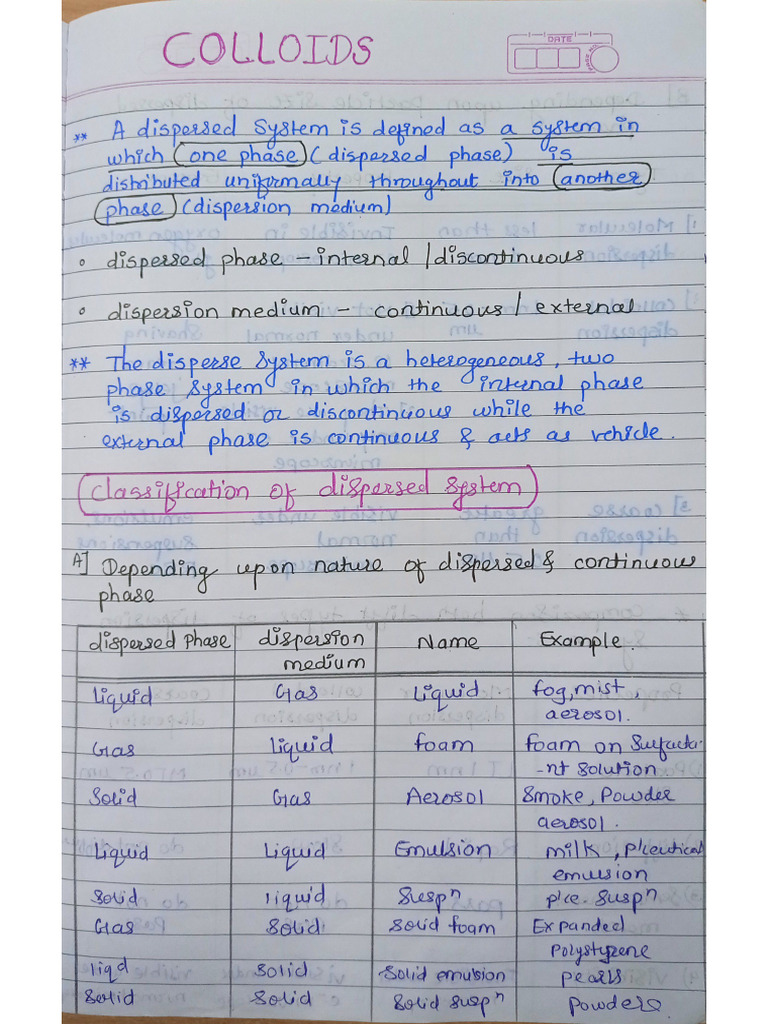 COLLOIDS
DATE
** A dispersed system is defined as a system in
which one phase (dispersed phase) is
distributed unifirmally throughout into another
phase (dispersion medium)
° dispersed phase – internal / discontinuous
° dispersion medium – continuous / external
** The disperse system is a heterogeneous, two
phase system in which the internal phase
is dispersed or discontinuous while the
external phase is continuous & acts as vehicle.
Classification of dispersed system
A] Depending upon nature of dispersed & continuous
phase
dispersed Phase dispersion medium Name Example.
Liquid Gas Liquid aerosol. fog, mist
Gas Liquid foam foam on Surfacta-nt solution
Solid Gas Aerosol Smoke, Powder aerosol.
Liquid Liquid Emulsion milk, p'ceutical emulsion
Solid liquid Suspⁿ p'ce. Suspⁿ
Gas Solid Solid foam Expanded Polystyrene
liqd Solid Solid emulsion pearls
Solid Solid Solid Suspⁿ Powders